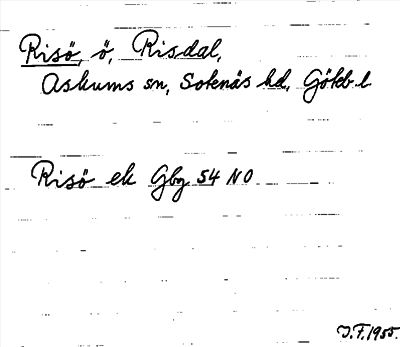 Risö, ö, Risdal,
Askums sn, Sotenäs hd, Gökb. l
Risö ek Gbg 54 NO
J.F. 1955.